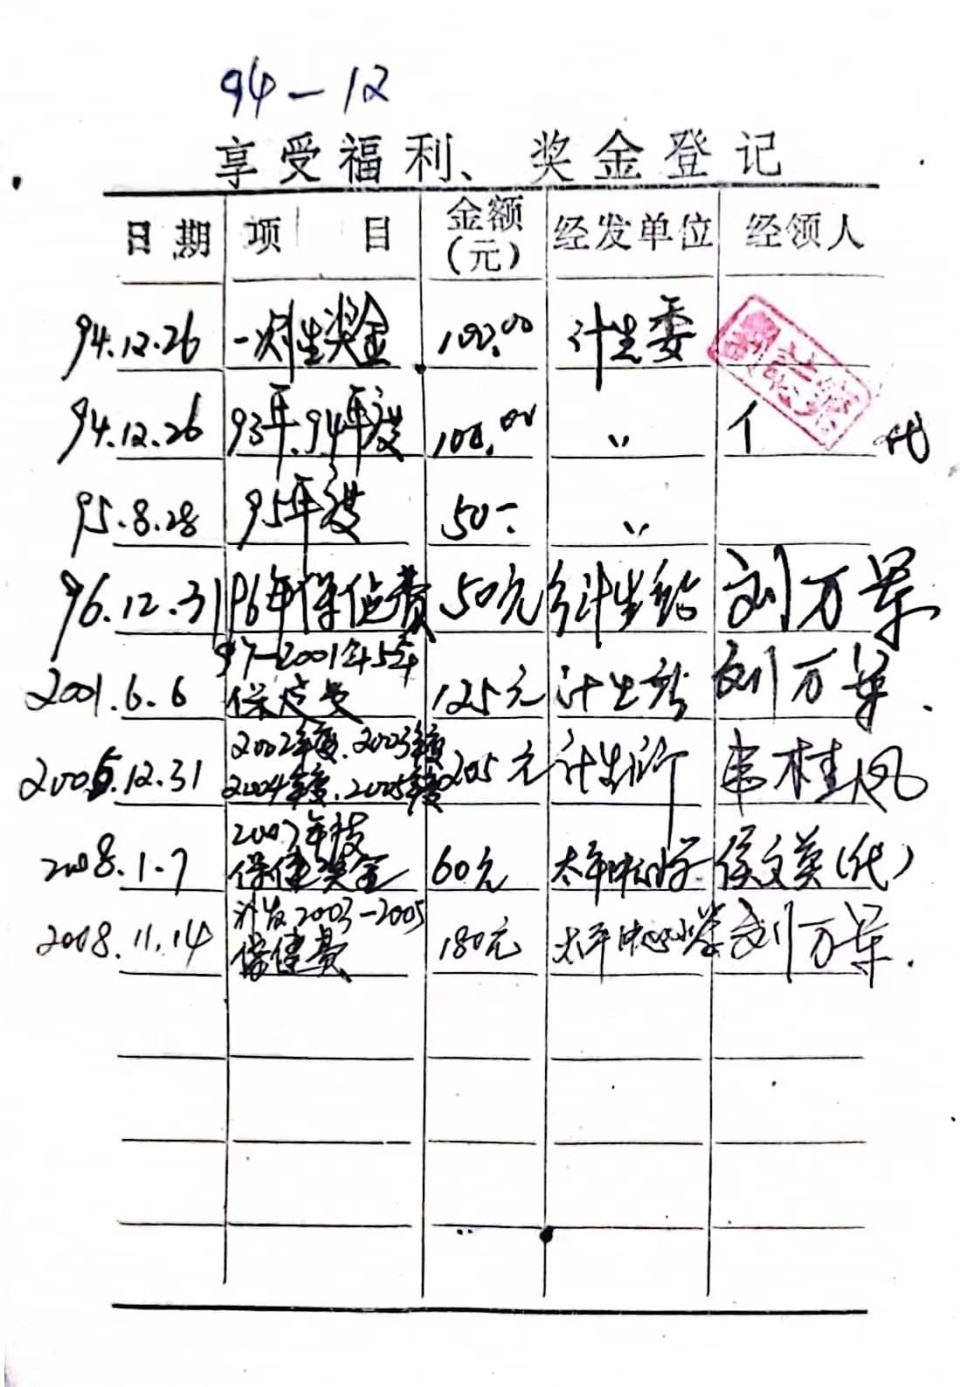 94-12
享受福利、奖金登记
日期 项目 金额(元) 经发单位 经领人
94.12.26 一次性奖金 100.00 计生委
94.12.26 93年、94年度 100.00 〃 代
95.8.28 95年度 50- 〃
96.12.31 96年保健费 50元 计生 刘万军
97-2001年5年
2001.6.6 保健费 125元 计生所 刘万军.
2002年度、2003年度
2005.12.31 2004年度、2005年度 205元 计生所 韦桂凤
2007年度
2008.1.7 保健奖金 60元 太平中心小学 侯文英(代)
补发2003-2005
2008.11.14 保健费 180元 太平中心小学 刘万军.